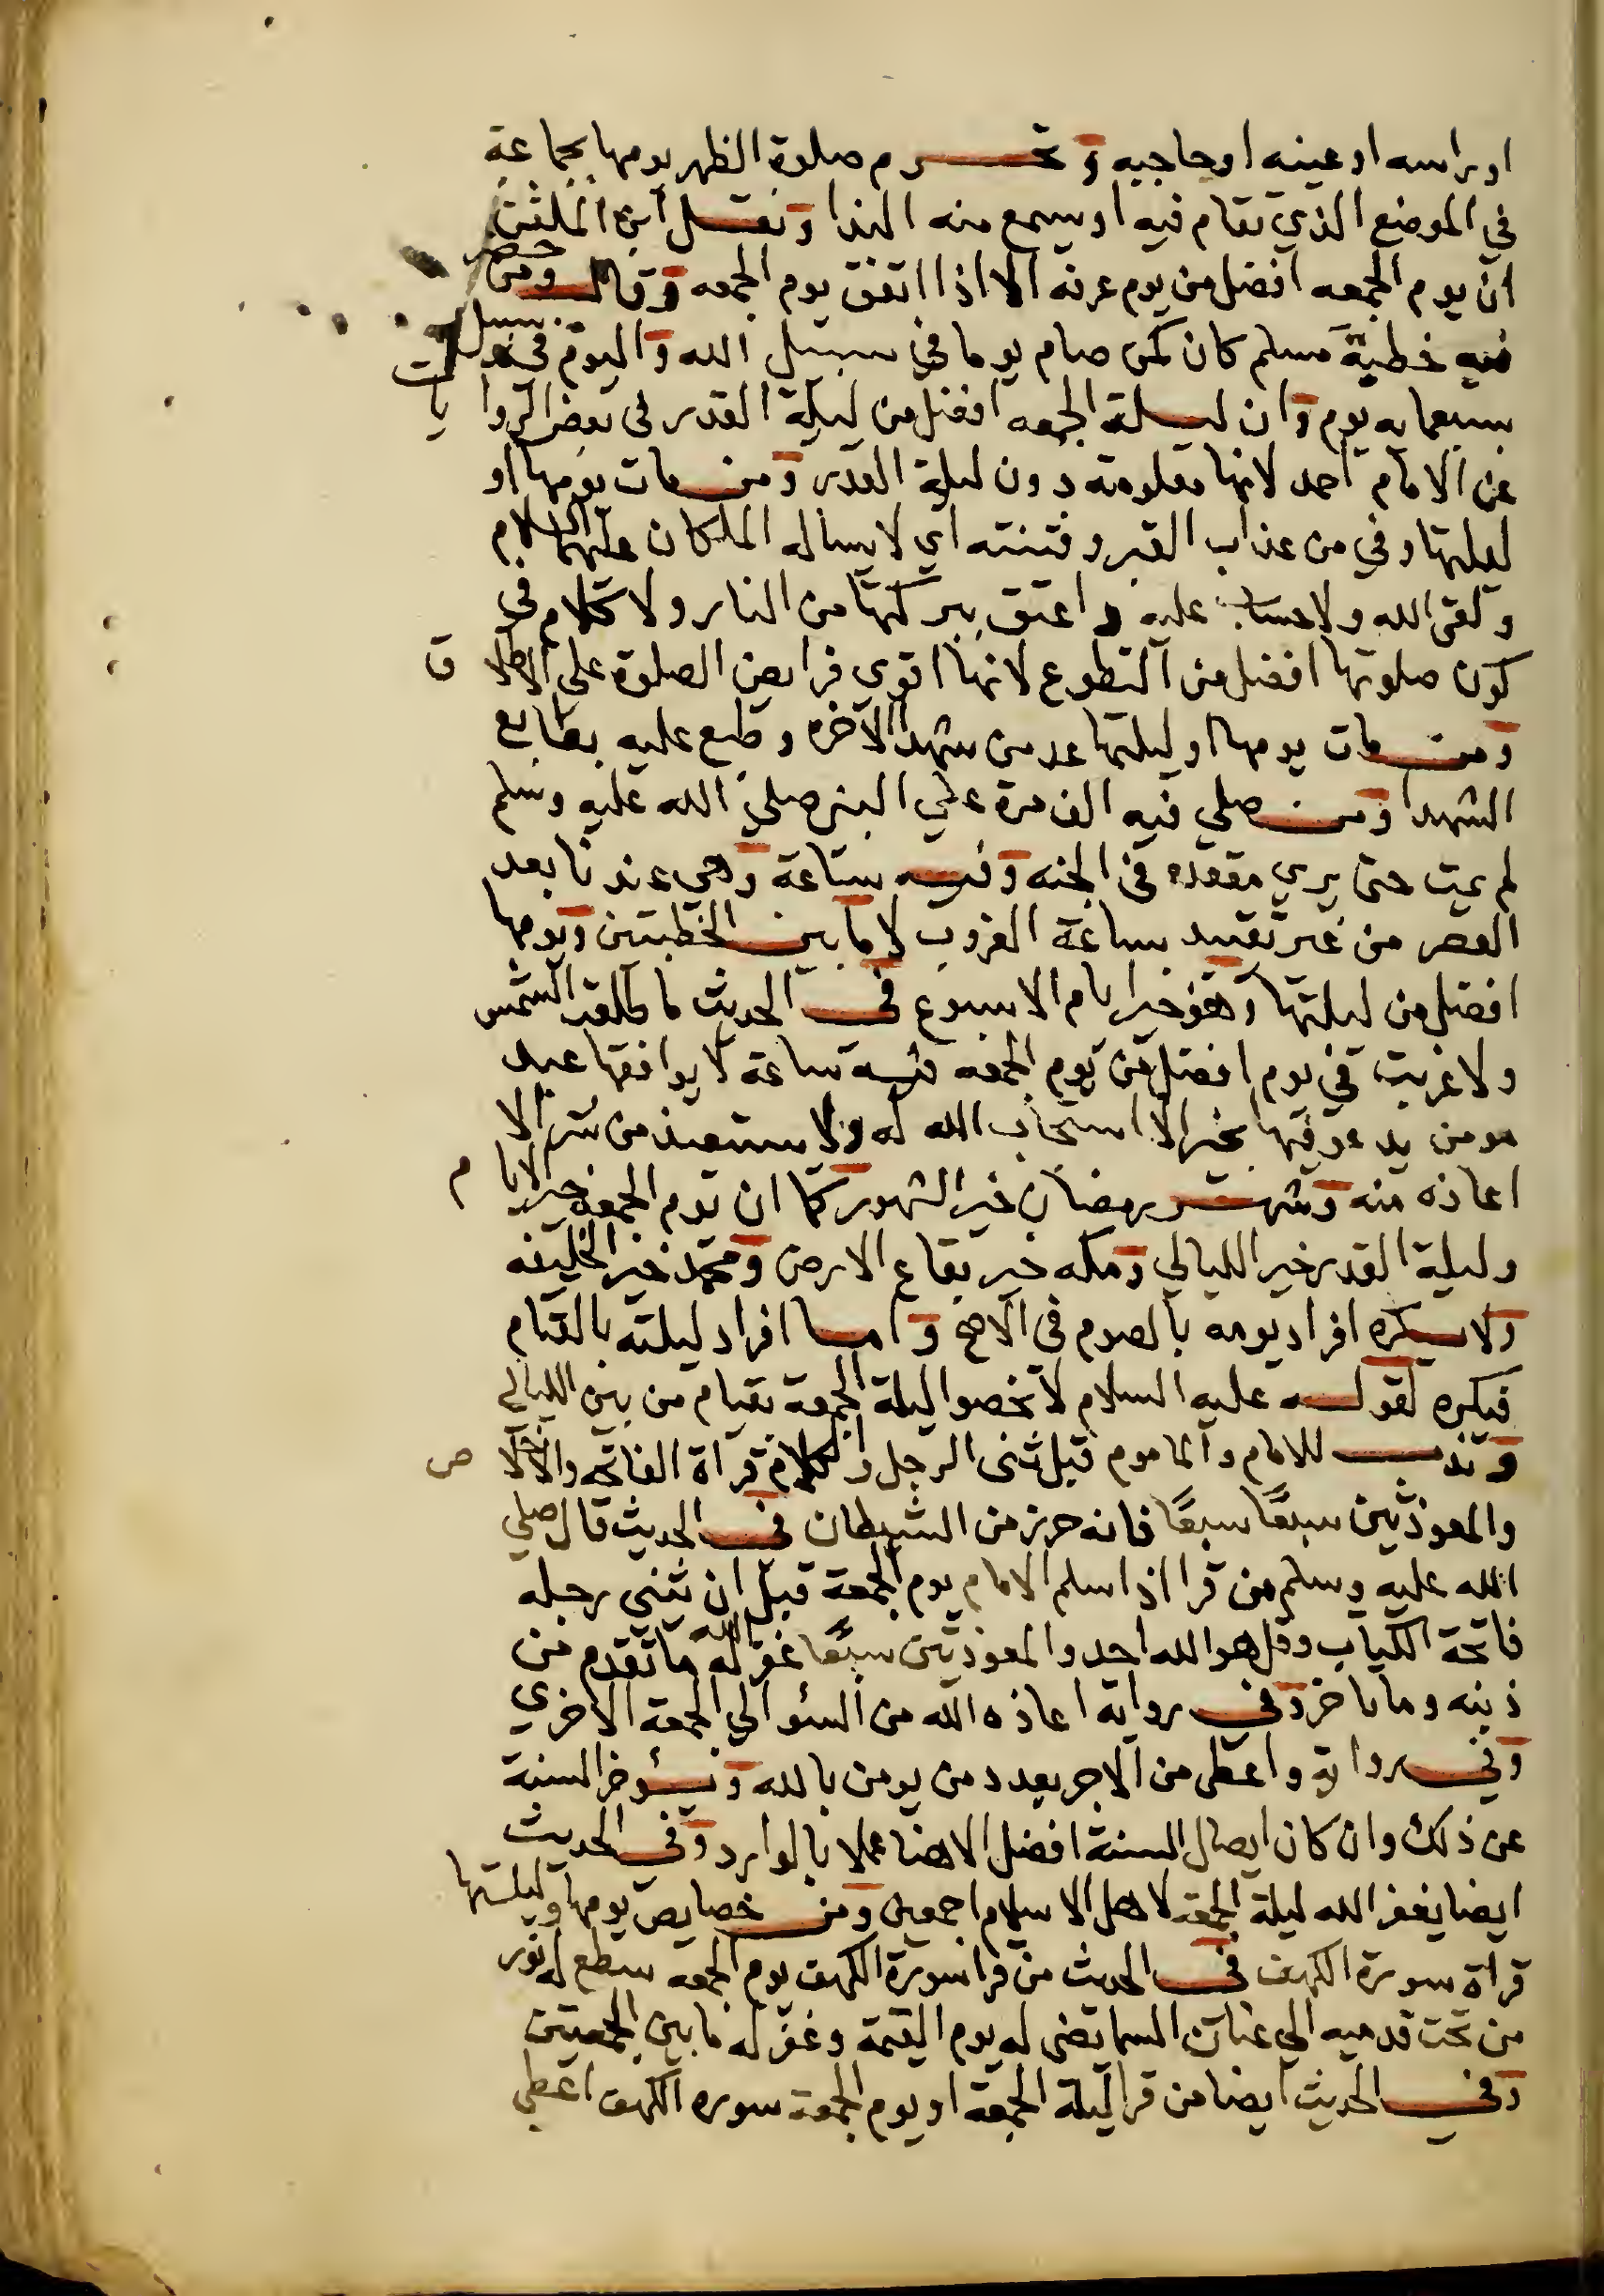 او براسه او عينه او حاجبه وتحرم صلوة الظهر يومها بجماعة
في الموضع الذي تقام فيه او يسمع منه الندا ونقل ابن الملقن
ان يوم الجمعه افضل من يوم عرفه الا اذا اتفق يوم الجمعه وقال ومن حضر
فيه خطبة مسلم كان كمن صام يوما في سبيل الله واليوم في سبيل
بسبعمايه يوم وان ليلة الجمعه افضل من ليلة القدر في بعض الروايات
عن الامام احمد لانها معلومة دون ليلة القدر ومن مات يومها او
ليلتها وقي من عذاب القبر وفتنته اي لا يساله الملكان عليهما السلام
ولقي الله ولا حساب عليه واعتق ببركتها من النار ولا كلام في
كون صلوتها افضل من التطوع لانها اقوي فرايض الصلوة علي الاطلاق
ومن مات يومها او ليلتها عد من شهدا الاخره وطبع عليه بطابع
الشهدا ومن صلي فيه الف مرة علي النبي صلي الله عليه وسلم
لم يمت حتي يري مقعده في الجنه وفيه ساعة وهي عندنا بعد
العصر من غير تقييد بساعة الغروب لا ما بين الخطبتين ويومها
افضل من ليلتها وهو خير ايام الاسبوع في الحديث ما طلعت الشمس
ولا غربت في يوم افضل من يوم الجمعه فيه ساعة لا يوافقها عبد
مومن يدعو فيها بخير الا استجاب الله له ولا يستعيذ من شر الا
اعاذه منه وشهر رمضان خير الشهور كما ان يوم الجمعه خير الايام
وليلة القدر خير الليالي ومكه خير بقاع الارض ومحمد خير الخليقه
ولا يكره افراد يومه بالصوم في الاصح واما افراد ليلته بالقيام
فيكره لقوله عليه السلام لا تخصوا ليلة الجمعة بقيام من بين الليالي
وندب للامام والماموم قبل ثني الرجل والكلام قراة الفاتحه والاخلاص
والمعوذتين سبعًا سبعًا فانه حرز من الشيطان في الحديث قال صلي
الله عليه وسلم من قرا اذا سلم الامام يوم الجمعة قبل ان يثني رجله
فاتحة الكتاب وقل هو الله احد والمعوذتين سبعًا غفر الله له ما تقدم من
ذنبه وما تاخر وفي رواية اعاذه الله من السؤ الي الجمعة الاخري
وفي رواية واعطي من الاجر بعدد من يومن بالله ويؤخر السنة
عن ذلك وان كان ايصال السنة افضل الا هنا عملا بالوارد وفي الحديث
ايضا يغفر الله ليلة الجمعة لاهل الاسلام اجمعين ومن خصايص يومها وليلتها
قراة سورة الكهف في الحديث من قرا سورة الكهف يوم الجمعه سطع له نور
من تحت قدميه الي عنان السما يضي له يوم القيمة وغفر له ما بين الجمعتين
وفي الحديث ايضا من قرا ليلة الجمعة او يوم الجمعة سوره الكهف اعطي